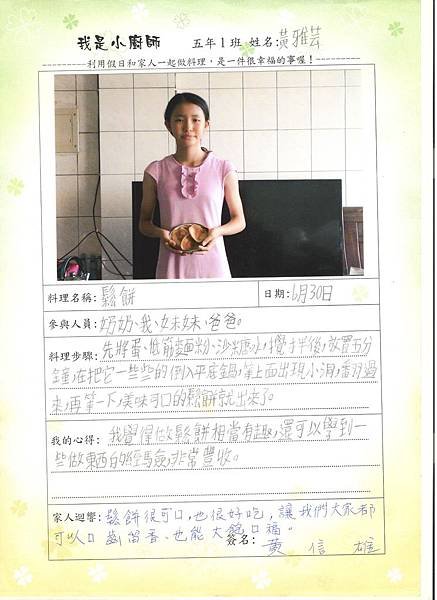 我是小廚師 五年1班 姓名:黃雅芸
利用假日和家人一起做料理,是一件很幸福的事喔!
料理名稱:鬆餅 日期:6月30日
參與人員:奶奶、我、妹妹、爸爸。
料理步驟:先將蛋、低筋麵粉、沙糖水,攪拌後,放置五分
鐘,在把它一些些的倒入平底鍋,等上面出現小泡,
來,再等一下,美味可口的鬆餅就出來了。
我的心得:我覺得做鬆餅相當有趣,還可以學到一
些做東西的經驗,非常豐收。
家人迴響:鬆餅很可口,也很好吃,讓我們大家都
可以口齒留香、也能大飽口福。
簽名:黃信雄